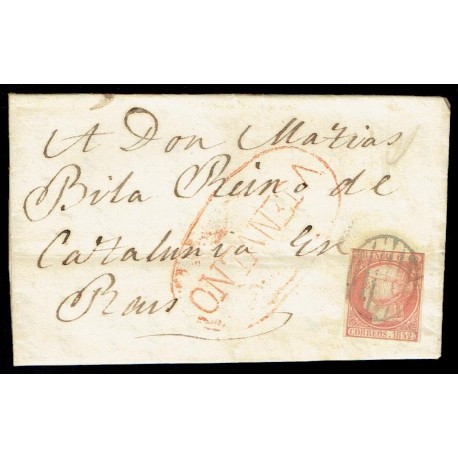 A Don Matias
Bila Reino de
Catalunia En
Reus
CORREOS. 1852